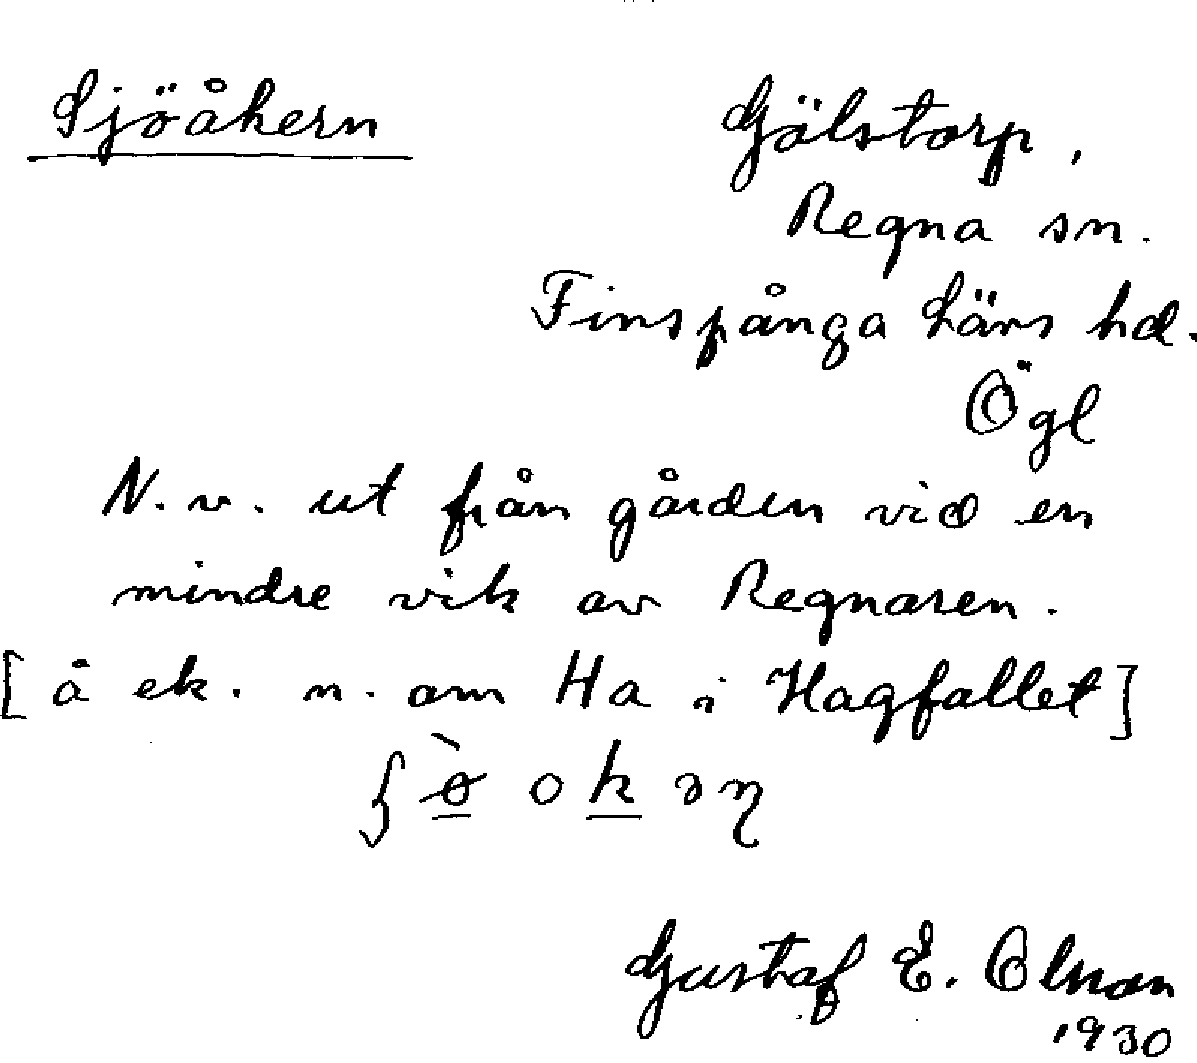 Sjöåkern
Gälstorp,
Regna sn.
Finspånga läns hd.
Ögl
N. v. ut från gården vid en
mindre vik av Regnaren.
[å ek. n. om Ha i Hagfallet]
Gustaf E. Olson
1930